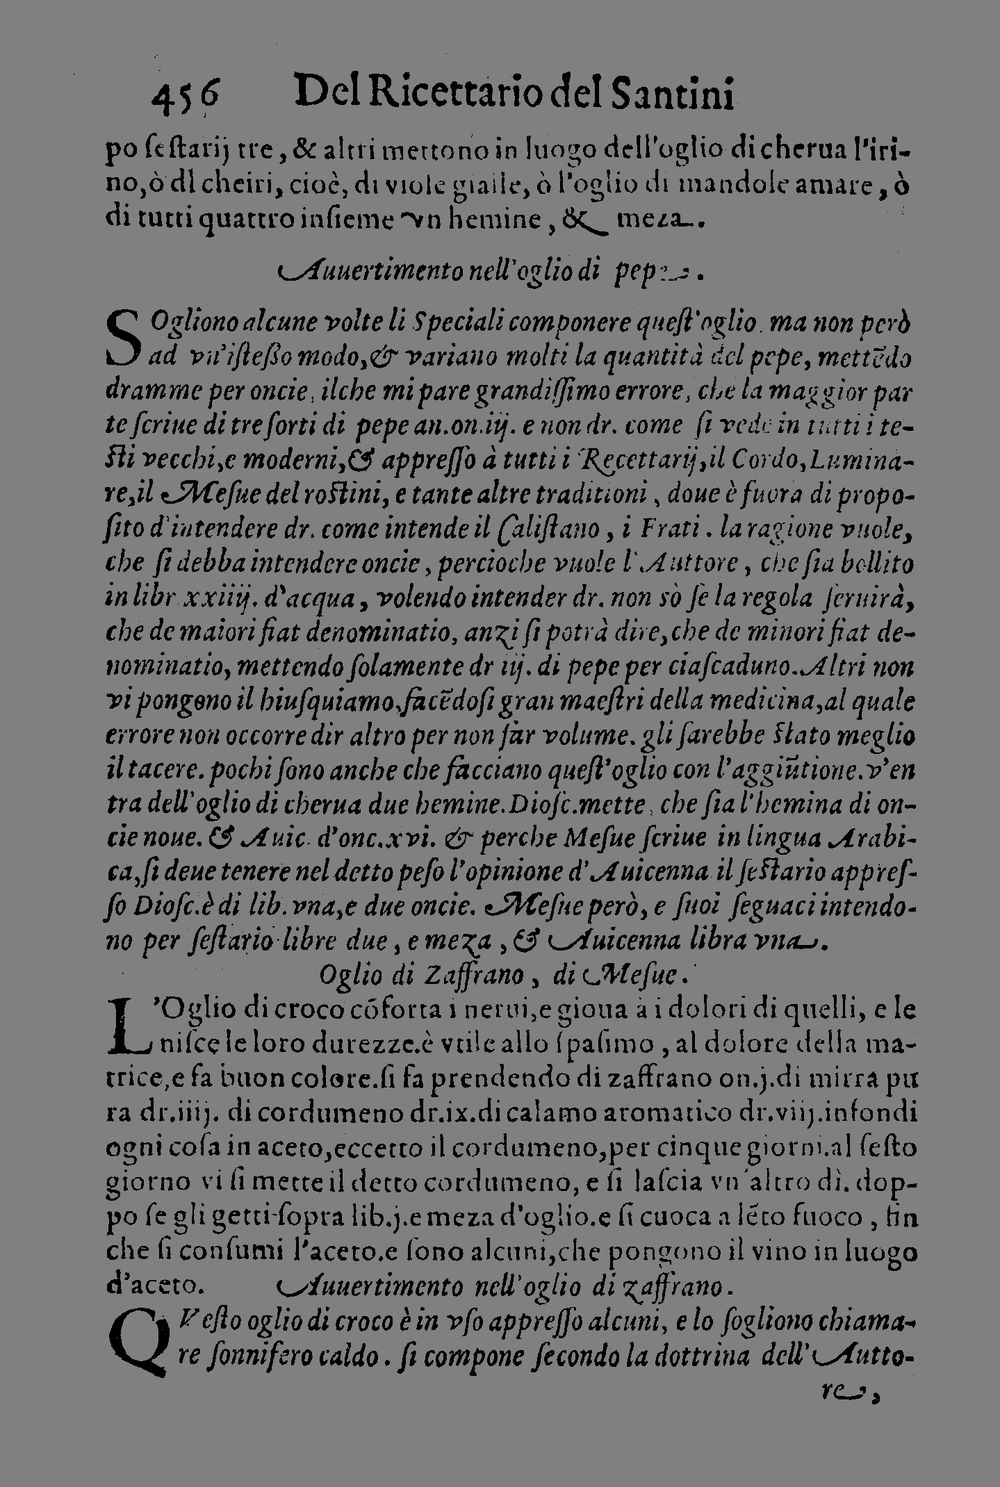 456 Del Ricettario del Santini
po ſeſtarij tre, & altri mettono in luogo dell'oglio di cherua l'iri-
no, ò dl cheiri, cioè, di viole gialle, ò l'oglio di mandole amare, ò
di tutti quattro inſieme vn hemine, & meza.
Auuertimento nell'oglio di pepe.
SOgliono alcune volte li Speciali componere queſt'oglio, ma non però
ad vn'iſteßo modo, & variano molti la quantità del pepe, mettẽdo
dramme per oncie, ilche mi pare grandiſſimo errore, che la maggior par
te ſcriue di tre ſorti di pepe an.on.iij. e non dr. come ſi vede in tutti i te-
ſti vecchi, e moderni, & appreſſo à tutti i Recettarij, il Cordo, Lumina-
re, il Meſue del roſtini, e tante altre traditioni, doue è fuora di propo-
ſito d'intendere dr. come intende il Caliſtano, i Frati. la ragione vuole,
che ſi debba intendere oncie, percioche vuole l'Auttore, che ſia bollito
in libr xxiiij. d'acqua, volendo intender dr. non sò ſe la regola ſeruirà,
che de maiori fiat denominatio, anzi ſi potrà dire, che de minori fiat de-
nominatio, mettendo ſolamente dr iij. di pepe per ciaſcaduno. Altri non
vi pongono il hiuſquiamo, facẽdoſi gran maeſtri della medicina, al quale
errore non occorre dir altro per non far volume. gli ſarebbe ſtato meglio
il tacere. pochi ſono anche che facciano queſt'oglio con l'aggiũtione. v'en
tra dell'oglio di cherua due hemine. Dioſc. mette, che ſia l'hemina di on-
cie noue. & Auic. d'onc.xvi. & perche Meſue ſcriue in lingua Arabi-
ca, ſi deue tenere nel detto peſo l'opinione d'Auicenna il ſeſtario appreſ-
ſo Dioſc. è di lib. vna, e due oncie. Meſue però, e ſuoi ſeguaci intendo-
no per ſeſtario libre due, e meza, & Auicenna libra vna.
Oglio di Zaffrano, di Meſue.
L'Oglio di croco cõforta i nerui, e gioua à i dolori di quelli, e le
niſce le loro durezze. è vtile allo ſpaſimo, al dolore della ma-
trice, e fa buon colore. ſi fa prendendo di zaffrano on.j. di mirra pu
ra dr.iiij. di cordumeno dr.ix. di calamo aromatico dr.viij. infondi
ogni coſa in aceto, eccetto il cordumeno, per cinque giorni. al ſeſto
giorno vi ſi mette il detto cordumeno, e ſi laſcia vn'altro dì. dop-
po ſe gli getti ſopra lib.j. e meza d'oglio. e ſi cuoca a lẽto fuoco, fin
che ſi conſumi l'aceto. e ſono alcuni, che pongono il vino in luogo
d'aceto. Auuertimento nell'oglio di zaffrano.
QVeſto oglio di croco è in vſo appreſſo alcuni, e lo ſogliono chiama-
re ſonnifero caldo. ſi compone ſecondo la dottrina dell'Autto-
re,